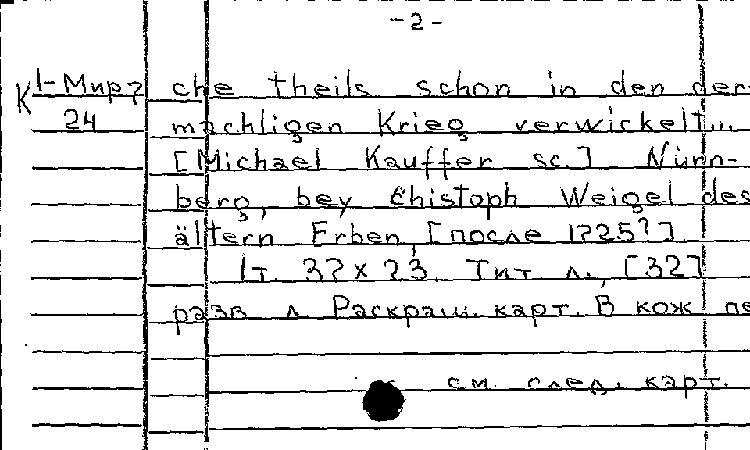 -2-
К 1-Мир7 che theils schon in den der-
24 machligen Krieg verwickelt...
[Michael Kauffer sc.] Nürn-
berg, bey Chistoph Weigel des
ältern Erben, [после 1725?]
1т. 37x23. Тит л., [32]
разв л Раскраш. карт. В кож пе
см. след. карт.